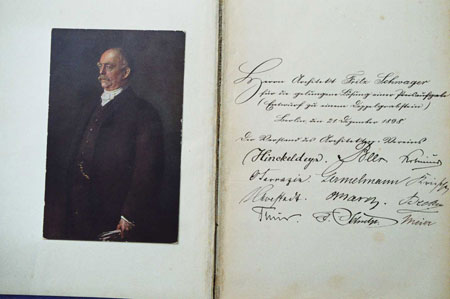 Herrn Architekt Fritz Schwager
für die gelungene Lösung einer Preisaufgabe
(Entwurf zu einem Doppelgrabstein)
Berlin, den 21 Dezember 1898
Der Vorstand des Architekten-Vereins
Hinckeldeyn.
Sarrazin Garnelmann
Havestadt. March.
Thür.